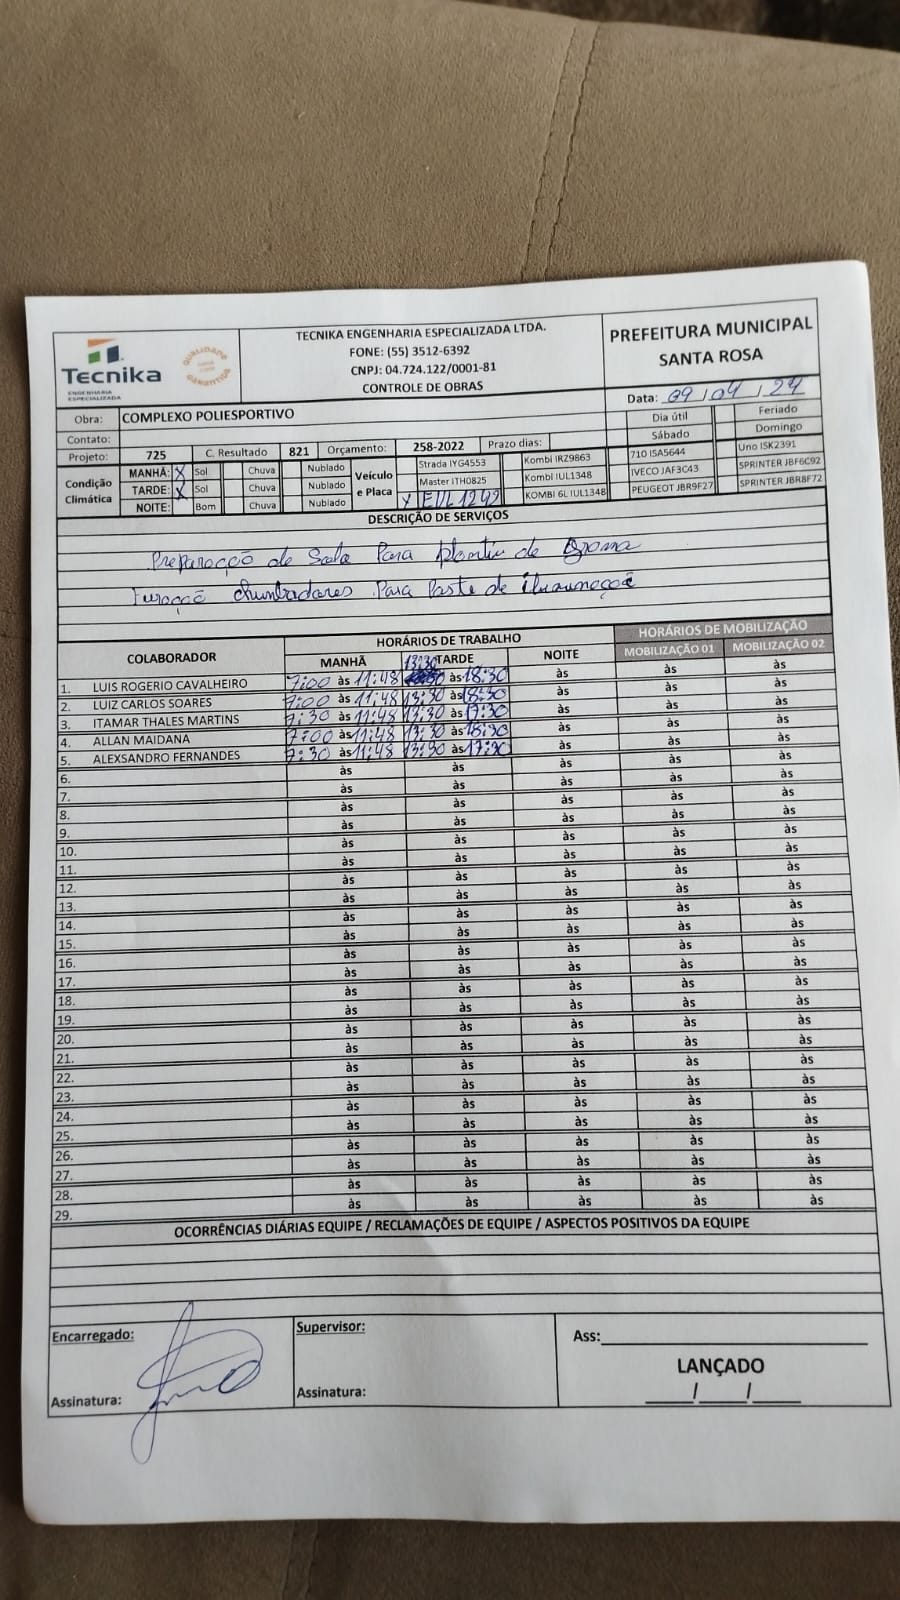 Tecnika
ENGENHARIA
ESPECIALIZADA
QUALIDADE
GARANTIDA
TECNIKA ENGENHARIA ESPECIALIZADA LTDA.
FONE: (55) 3512-6392
CNPJ: 04.724.122/0001-81
CONTROLE DE OBRAS
PREFEITURA MUNICIPAL
SANTA ROSA
Data: 09/04/24
Obra: COMPLEXO POLIESPORTIVO
Dia útil Feriado
Contato: Sábado Domingo
Projeto: 725 C. Resultado 821 Orçamento: 258-2022 Prazo dias:
Condição Climática
MANHÃ: X Sol Chuva Nublado
TARDE: X Sol Chuva Nublado
NOITE: Bom Chuva Nublado
Veículo e Placa
Strada IYG4553 Kombi IRZ9863 710 ISA5644 Uno ISK2391
Master ITH0825 Kombi IUL1348 IVECO JAF3C43 SPRINTER JBF6C92
X EUL1242 KOMBI 6L IUL1348 PEUGEOT JBR9F27 SPRINTER JBR8F72
DESCRIÇÃO DE SERVIÇOS
Preparaçcõ de Solo Para plantiu de Grama
Furaçcõ chumbadores Para Poste de iluumnaçcõ
COLABORADOR HORÁRIOS DE TRABALHO HORÁRIOS DE MOBILIZAÇÃO
MANHÃ TARDE NOITE MOBILIZAÇÃO 01 MOBILIZAÇÃO 02
1. LUIS ROGERIO CAVALHEIRO 7:00 às 11:48 13:30 às 18:30 às às às
2. LUIZ CARLOS SOARES 7:00 às 11:48 13:30 às 18:30 às às às
3. ITAMAR THALES MARTINS 7:30 às 11:48 13:30 às 17:30 às às às
4. ALLAN MAIDANA 7:00 às 11:48 13:30 às 18:30 às às às
5. ALEXSANDRO FERNANDES 7:30 às 11:48 13:30 às 17:30 às às às
6. às às às às às
7. às às às às às
8. às às às às às
9. às às às às às
10. às às às às às
11. às às às às às
12. às às às às às
13. às às às às às
14. às às às às às
15. às às às às às
16. às às às às às
17. às às às às às
18. às às às às às
19. às às às às às
20. às às às às às
21. às às às às às
22. às às às às às
23. às às às às às
24. às às às às às
25. às às às às às
26. às às às às às
27. às às às às às
28. às às às às às
29. às às às às às
OCORRÊNCIAS DIÁRIAS EQUIPE / RECLAMAÇÕES DE EQUIPE / ASPECTOS POSITIVOS DA EQUIPE
Encarregado: Supervisor: Ass:
LANÇADO
Assinatura: Assinatura: / /